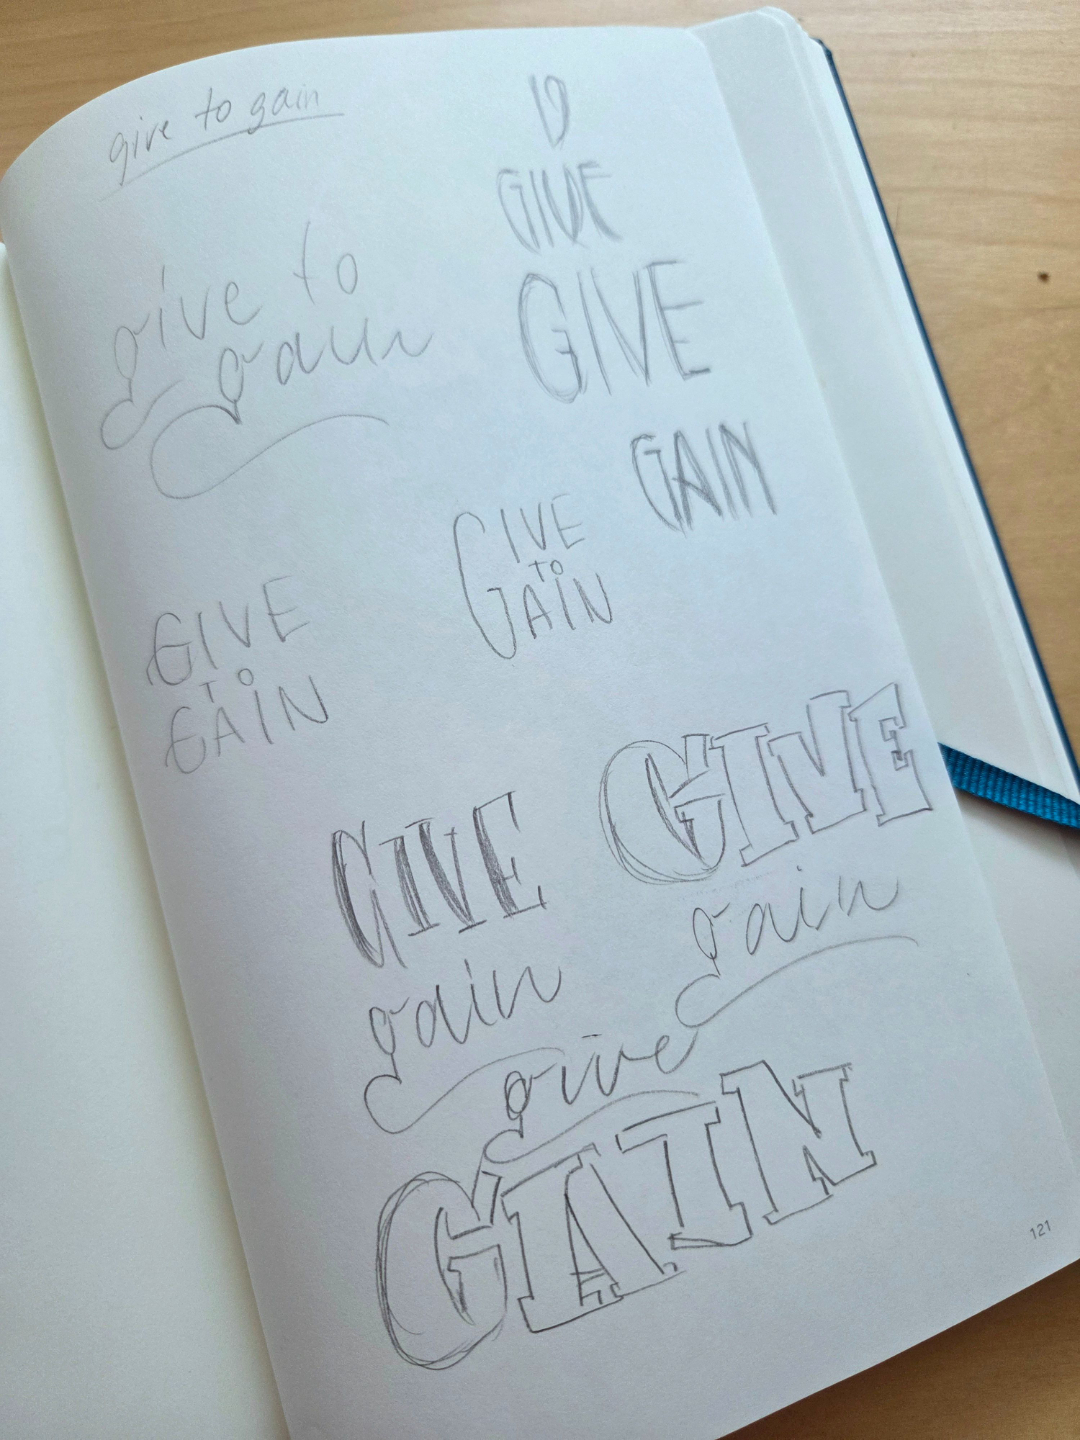 give to gain
GIVE
give to
gain
GIVE
GAIN
GIVE
TO
GAIN
GIVE
TO
GAIN
GIVE
GIVE
gain
gain
give
GAIN
121